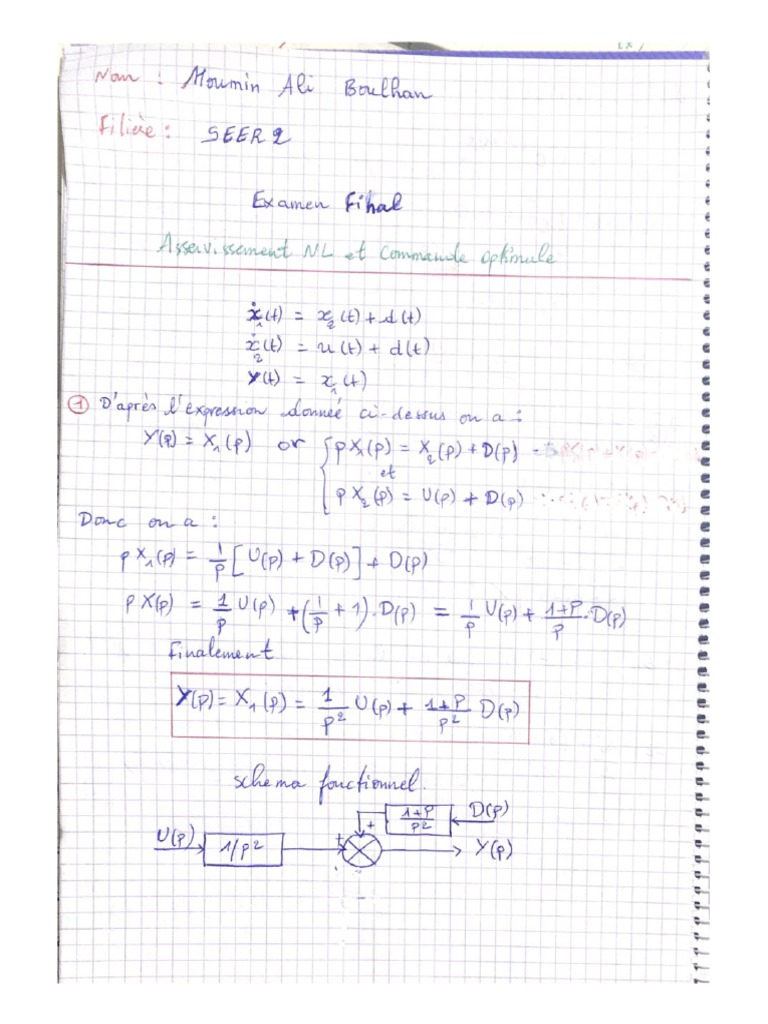 Nom : Moumin Ali Boulhan
Filière : SEER2
Examen Final
Asservissement NL et commande optimale
ẋ₁(t) = x₂(t) + d(t)
ẋ₂(t) = u(t) + d(t)
Y(t) = x₁(t)
① D'après l'expression donnée ci-dessus on a :
Y(p) = X₁(p) or { pX₁(p) = X₂(p) + D(p)
et
pX₂(p) = U(p) + D(p)
Donc on a :
pX₁(p) = 1/p [U(p) + D(p)] + D(p)
pX(p) = 1/p U(p) + (1/p + 1).D(p) = 1/p U(p) + 1+P/p . D(p)
Finalement
Y(p) = X₁(p) = 1/p² U(p) + 1+P/p² D(p)
schema fonctionnel.
1+P/p² D(p)
U(p) 1/p² + + Y(p)